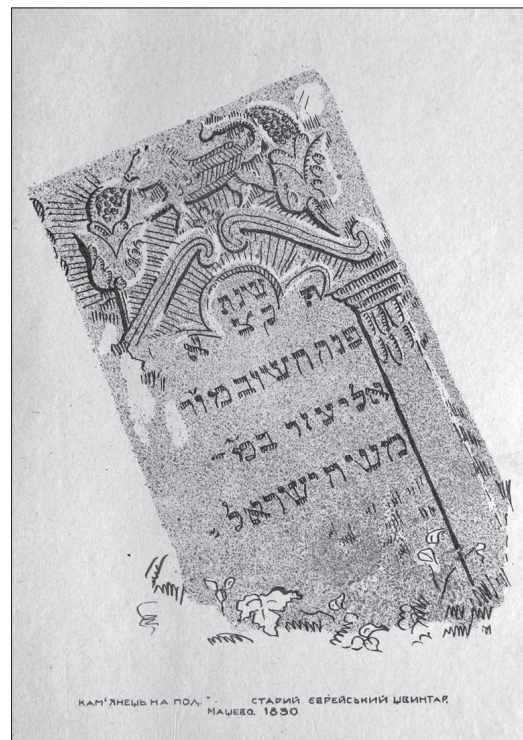 שנת
ת ק צ
פנה
אליעזר במ״
משיח ישראל
КАМ'ЯНЕЦЬ НА ПОД. СТАРИЙ ЄВРЕЙСЬКИЙ ЦВИНТАР.
МАЦЕВО. 1830